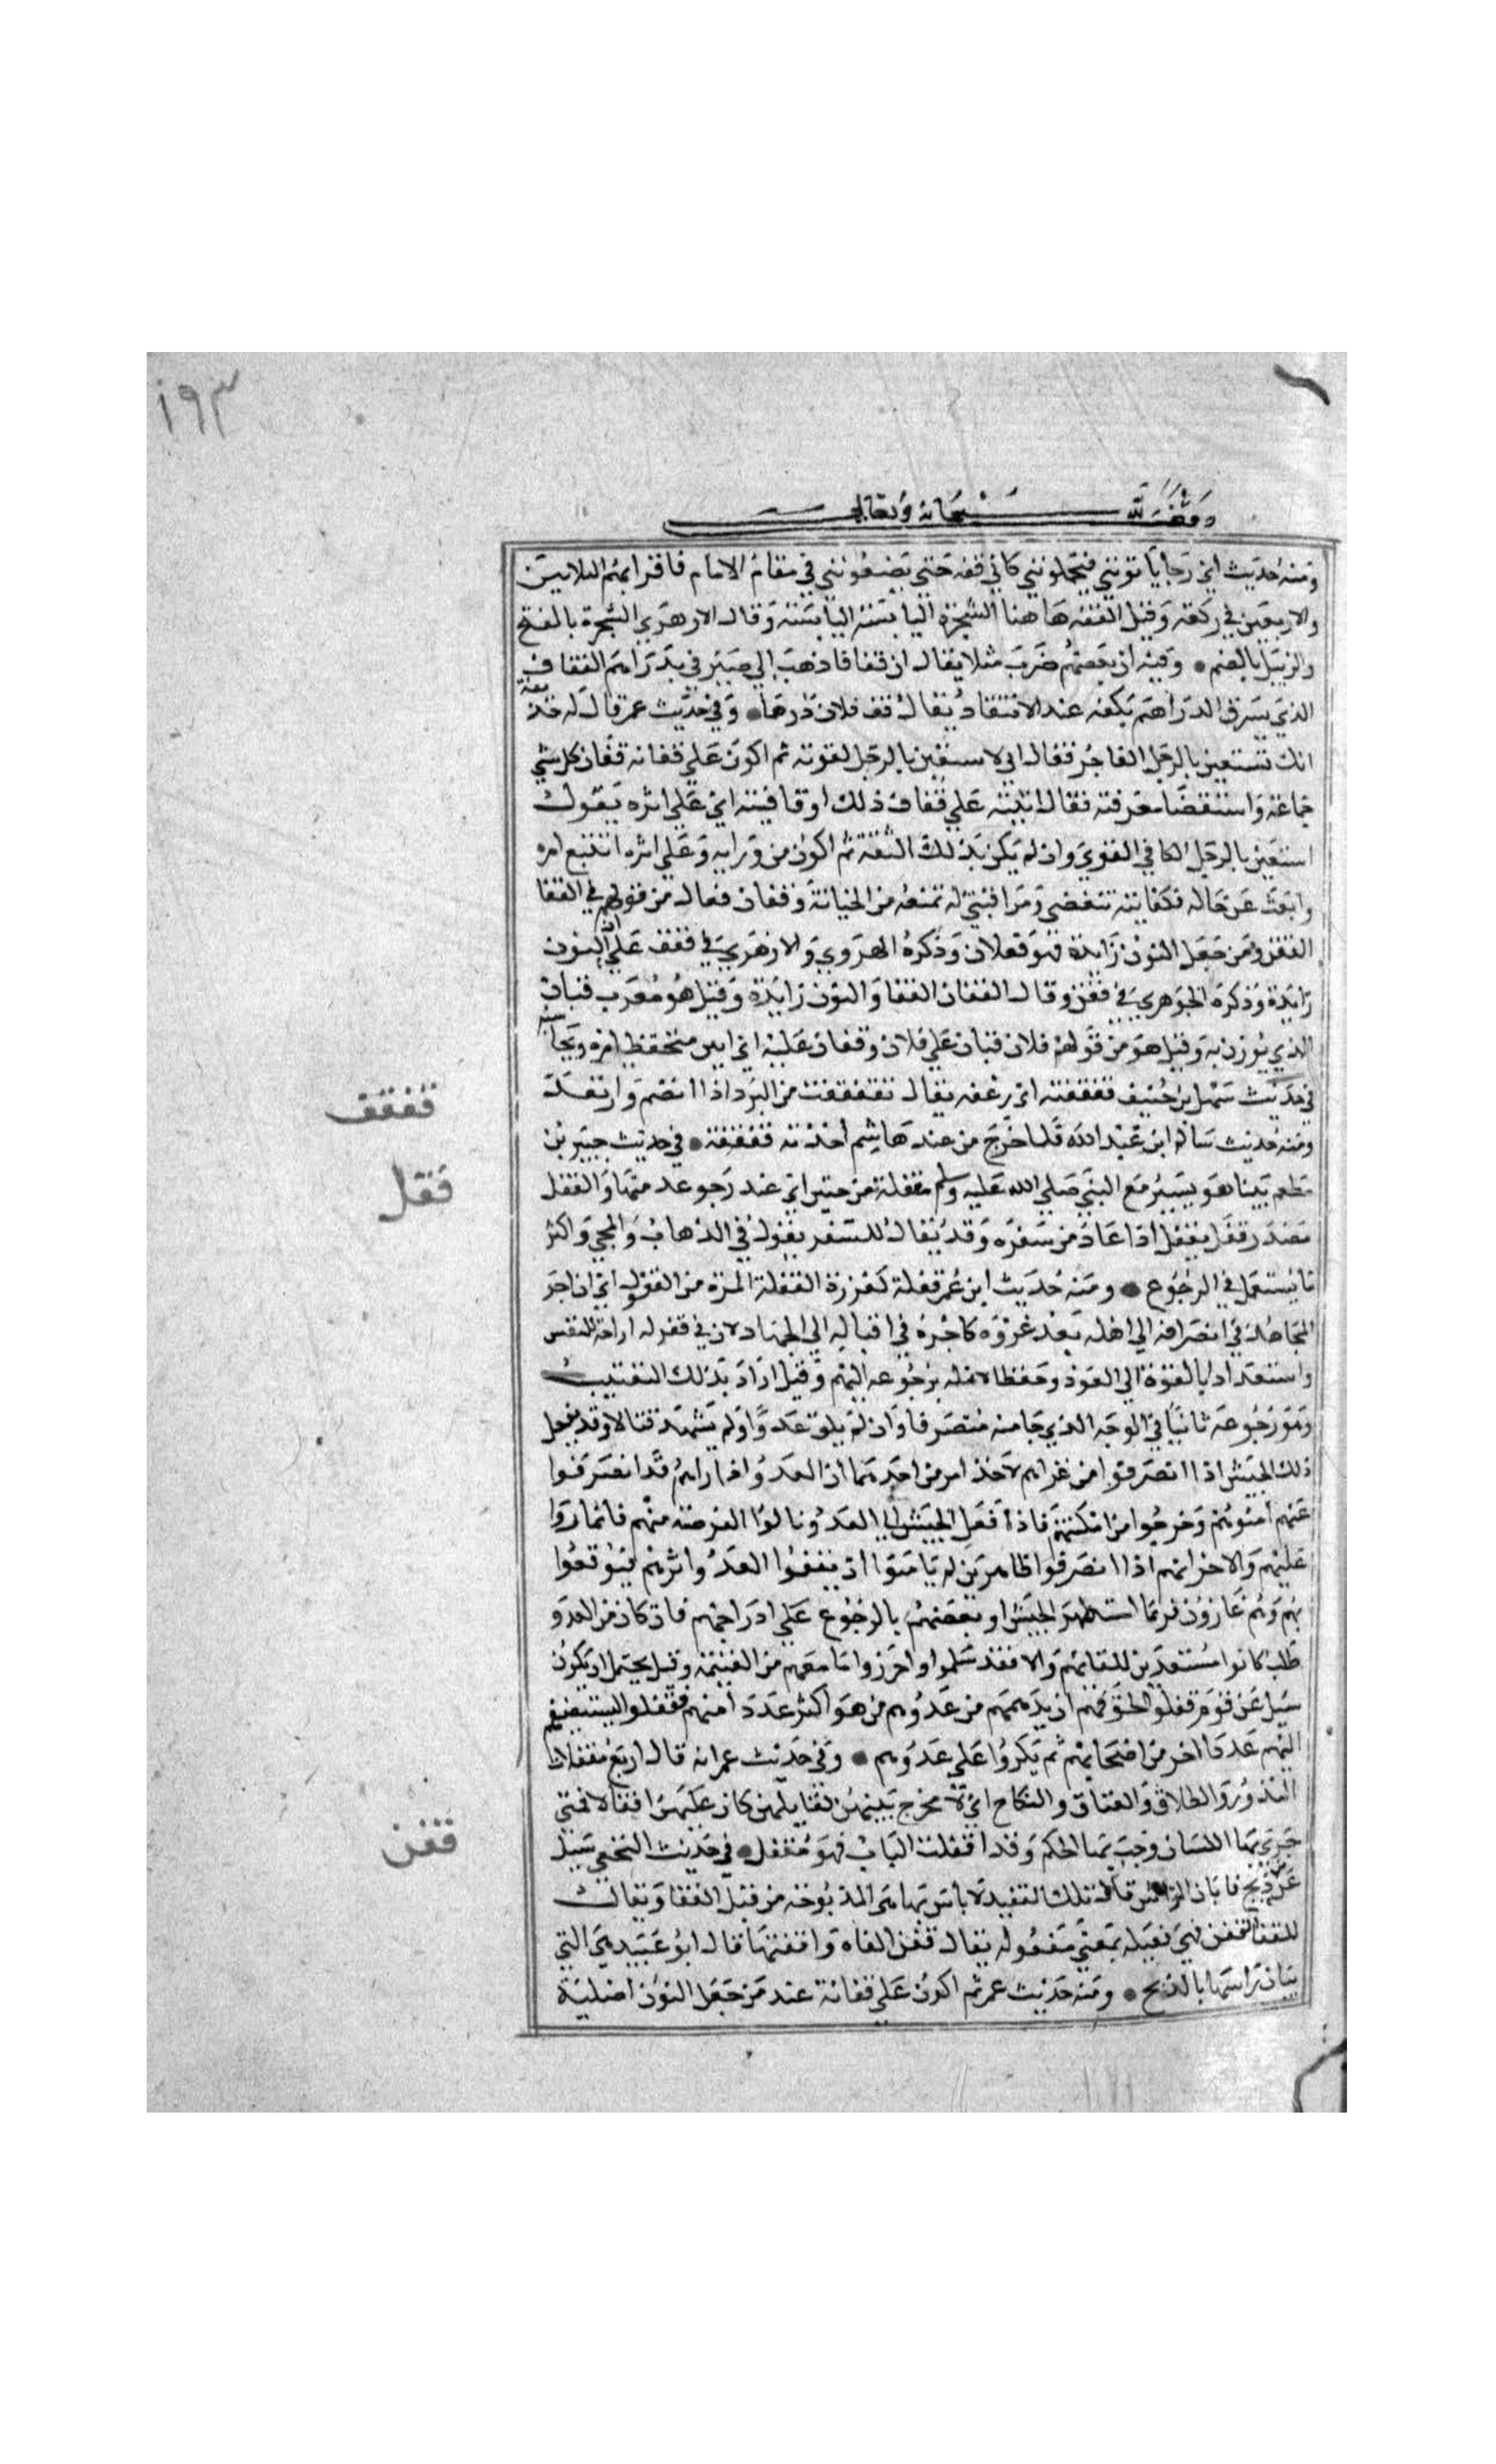 ١٩٣
وقف لله سبحانه وتعالى
ومنه حديث ابي رجا ياتونني فيحملونني كاني قفه حتي يضعونني في مقام الامام فاقرا بهم الثلاثين
والاربعين في ركعه وقيل القفه هاهنا الشجرة اليابسه اليابسه وقال الازهري الشجرة بالفتح
والزبيل بالضم • وفيه ان بعضهم ضرب مثلا يقال ان قفافا ذهب الي صيرفي بدراهم القفاف
الذي يسرق الدراهم بكفه عند الانتقاد يقال قف فلان درهما • وفي حديث عمر قال له حذيفة
انك تستعين بالرجل الفاجر فقال اني لاستعين بالرجل لقوته ثم اكون علي قفانه قفان كل شي
جماعه واستقضا معرفته يقال اتيته علي قفان ذلك او قافيته اي علي اثره يقول
استعين بالرجل الكافي القوي وان لم يكن بذلك الثقة ثم اكون من ورايه وعلي اثره اتتبع امره
وابحث عن حاله فكفايته تنفعني ومراقبتي له تمنعه من الخيانة وقفان فعال من قولهم في القفا
القفن ومن جعل النون زايدة فهو فعلان وذكره الهروي والازهري في قفف علي ان النون
زايدة وذكره الجوهري في قفن وقال القفان القفا والنون زايدة وقيل هو معرب قبان
الذي يوزن به وقيل هو من قولهم فلان قبان علي فلان وقفان عليه اي امين متحفظ امره ويحاسبه
في حديث سهل بن حنيف فقفقفته اي رعفه يقال تقفقفت من البرد اذا انضم وارتعد
ومنه حديث سالم ابن عبدالله فلما خرج من عند هاشم اخذته قفقفه • في حديث جبير بن
مطعم بينا هو يسير مع النبي صلي الله عليه وسلم مقفلة من حنين اي عند رجوعه منها والقفل
مصدر قفل يقفل اذا عاد من سفره وقد يقال للسفر يقول في الذهاب والمجي واكثر
ما يستعمل في الرجوع • ومنه حديث ابن عمر قفلة كغزوة القفلة المرة من القفول اي ان اجر
المجاهد في انصرافه الي اهله بعد غزوه كاجره في اقباله الي الجهاد لان في قفوله اراحة للنفس
واستعدادا بالقوة الي العود وحفظا لاهله برجوعه اليهم وقيل اراد بذلك التعقيب
وهو رجوعه ثانيا في الوجه الذي جا منه منصرفا وان لم يلق عدوا ولم يشهد قتالا وقد يفعل
ذلك الجيش اذا انصرفوا من غزاهم لاحد امرين احدهما ان العدو اذا راهم قد انصرفوا
عنهم امنوهم وخرجوا من امكنتهم فاذا قفل الجيش الي العدو نالوا الفرصة منهم فاغاروا
عليهم والاخر انهم اذا انصرفوا ظاهرين لم يامنوا ان يقفوا العدو اثرهم فيوقعوا
بهم وهم غارون فربما استظهر الجيش او بعضهم بالرجوع علي ادراجهم فان كان من العدو
طلب كانوا مستعدين للقايهم والا فقد سلموا واحرزوا ما معهم من الغنيمة وقيل يحتمل ان يكون
سيل عن قوم قفلوا لخوفهم ان يدهمهم من عدوهم من هو اكثر عددا منهم فقفلوا ليستضيفوا
اليهم عددا اخر من اصحابهم ثم يكروا علي عدوهم • وفي حديث عمر انه قال اربع مقفلات
النذور والطلاق والعتاق والنكاح اي لا مخرج بينهن لقايلهن كان عليهن اقفالا فمتي
جري بها اللسان وجب بها الحكم وقد اقفلت الباب فهو مقفل • في حديث النخعي سيل
عن ذبح فابان الراس قال تلك القفينة لا باس بها هي المذبوحه من قبل القفا ويقال
للقفا القفن فهي فعيله بمعني مفعوله يقال قفن الشاه واقفنها قال ابو عبيد هي التي
يبان راسها بالذبح • ومنه حديث عمر ثم اكون علي قفانه عند من جعل النون اصلية
قفقف
قفل
قفن